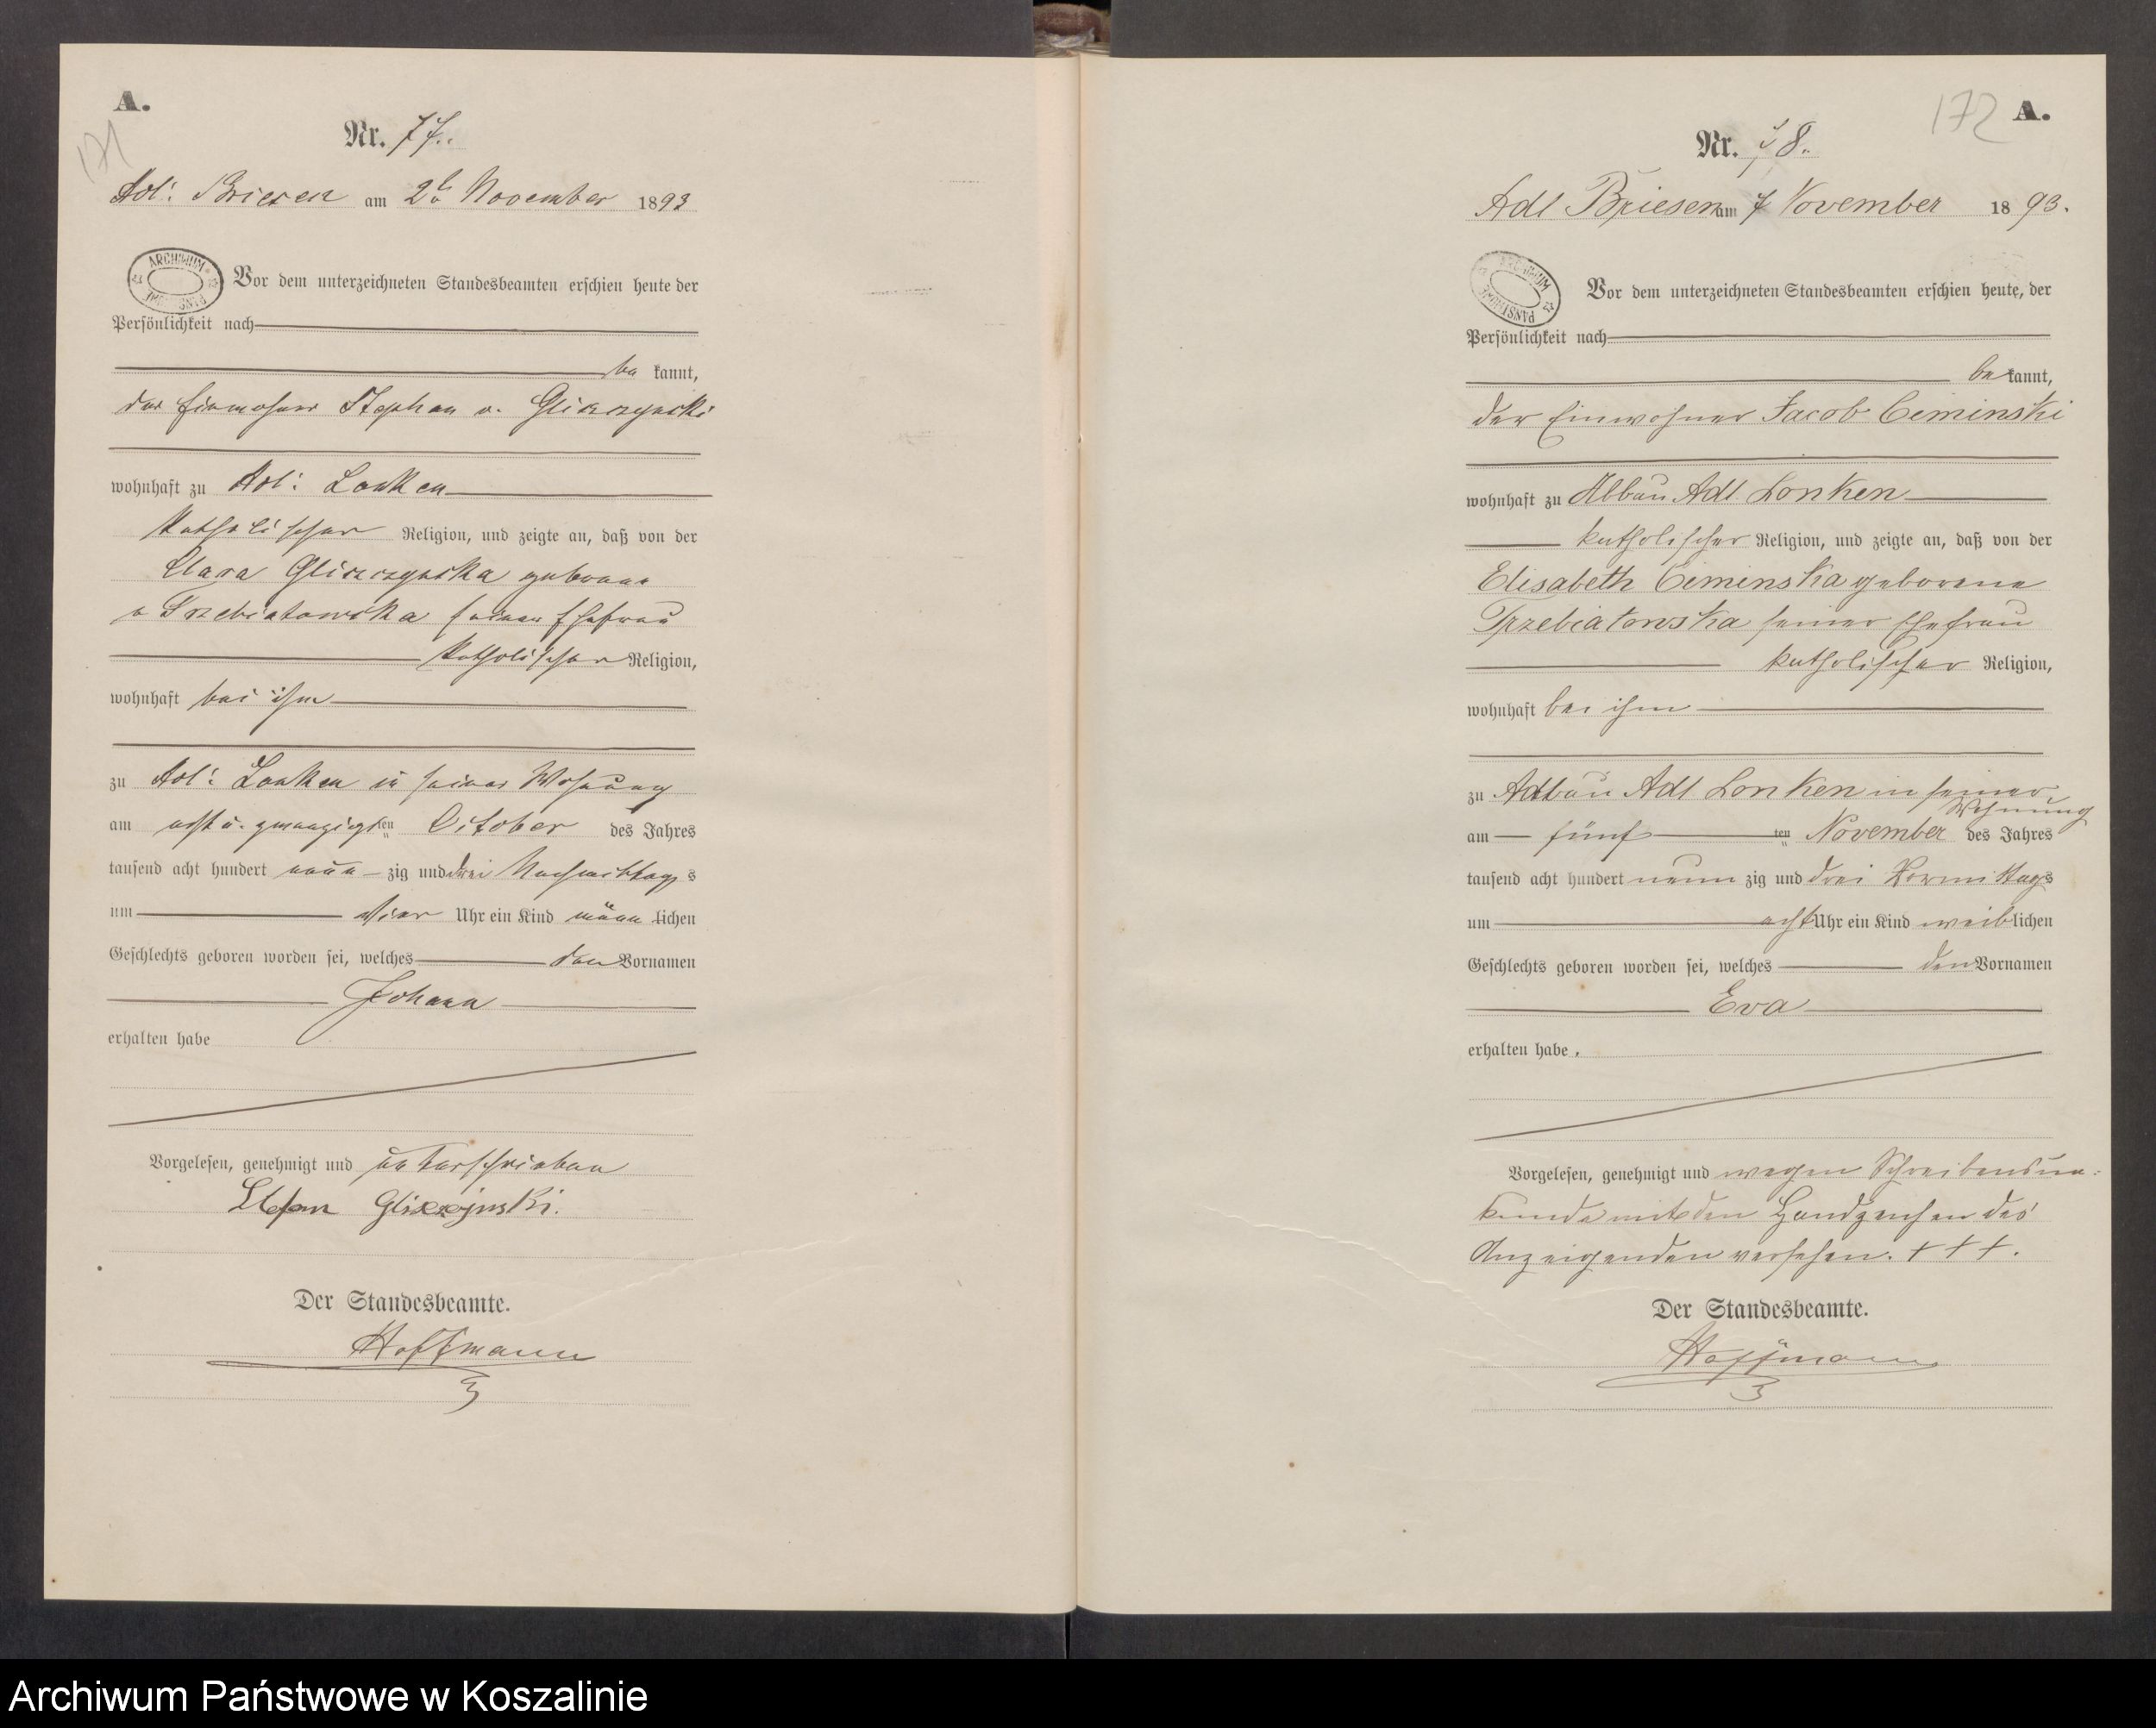 A.
171
Nr. 77.
Adl: Briesen am 2t November 1893
ARCHIWUM PAŃSTWOWE
Vor dem unterzeichneten Standesbeamten erschien heute der
Persönlichkeit nach
be kannt,
der Einwohner Stephan v. Gliszczynski
wohnhaft zu Adl: Lonken
katholischer Religion, und zeigte an, daß von der
Clara Gliszczynska geborene
v Trzebiatowska seiner Ehefrau
katholischer Religion,
wohnhaft bei ihm
zu Adl: Lonken in seiner Wohnung
am acht u. zwanzigsten October des Jahres
tausend acht hundert neun zig und drei Nachmittags
um vier Uhr ein Kind männ lichen
Geschlechts geboren worden sei, welches den Vornamen
Johann
erhalten habe
Vorgelesen, genehmigt und unterschrieben
Stefan Gliszczynski.
Der Standesbeamte.
Hoffmann
172
A.
Nr. 78.
Adl Briesen am 7 November 1893.
ARCHIWUM PAŃSTWOWE
Vor dem unterzeichneten Standesbeamten erschien heute, der
Persönlichkeit nach
be kannt,
der Einwohner Jacob Ceminski
wohnhaft zu Abbau Adl. Lonken
katholischer Religion, und zeigte an, daß von der
Elisabeth Ceminska geborene
Trzebiatowska seiner Ehefrau
katholischer Religion,
wohnhaft bei ihm
zu Abbau Adl Lonken in seiner
Wohnung
am fünf ten November des Jahres
tausend acht hundert neun zig und drei Vormittags
um acht Uhr ein Kind weib lichen
Geschlechts geboren worden sei, welches den Vornamen
Eva
erhalten habe.
Vorgelesen, genehmigt und wegen Schreibensun-
kunde mit den Handzeichen des
Anzeigenden versehen. + + +.
Der Standesbeamte.
Hoffmann
Archiwum Państwowe w Koszalinie